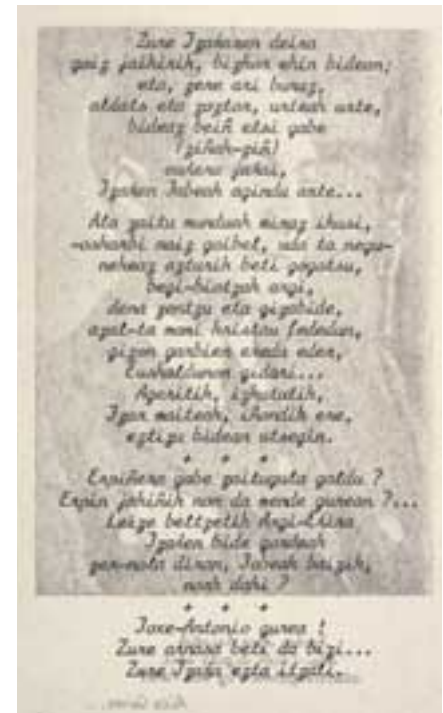 Zure Izarraren deira
goiz jaikirik, bizkar ekin bidean;
eta, gero ari buruz,
aldats eta goztar, urteak urte,
bideaz beiñ etsi gabe
aurrera jarrai,
Izarren Jabeak agindu arte...
Ala zaitu munduak minaz ikusi,
naiz goibel, uda ta negu-
nekeaz azturik beti gogotsu,
begi-biotzak argi,
dena zentzu eta gizabide,
apal-ta moni kristau fededun,
gizon garbien eredu eder,
Euskaldunon gidari...
Ageritik, izkutatik,
Izar maiteak, iñondik ere,
eztizu bidean utsegin.
+ + +
Erpiñera gabe zaitugula galdu?
Erpin jakiñik non da mende gurean?...
Leize beltzetik Argi-Errira
Izarren bide gardeak
zer-nola diran, Jabeak baizik,
nork daki?
+ + +
Joxe-Antonio gurea!
Zure arnasa beti da bizi...
Zure Izarra ezta itzali.